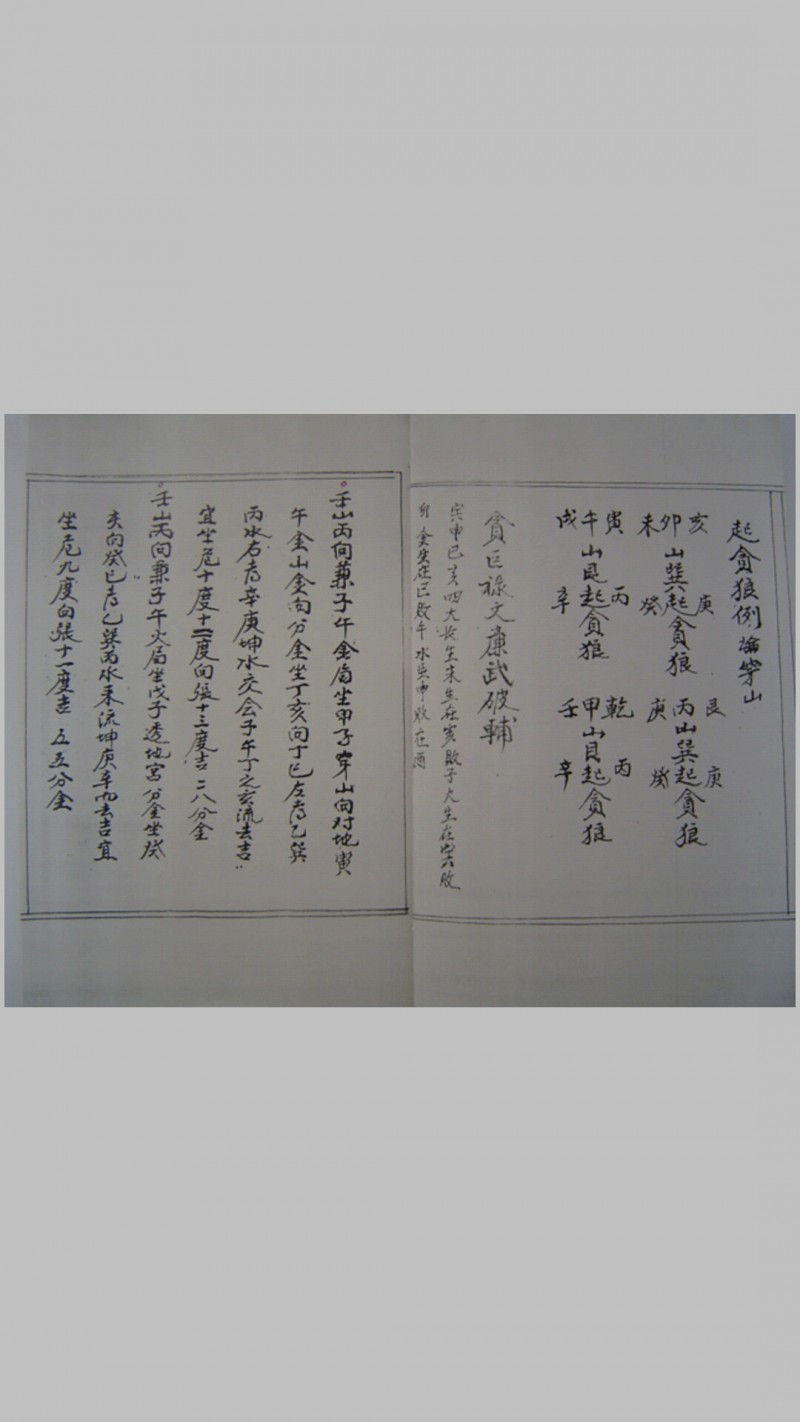 起貪狼例論穿山
亥卯未 庚癸 山巽起貪狼
艮丙庚 庚癸 山巽起貪狼
寅午戌 丙辛 山艮起貪狼
乾甲壬 丙辛 山艮起貪狼
貪巨祿文廉武破輔
寅申巳亥四大長生木生在亥敗子火生在寅敗
卯金生在巳敗午水生申敗在酉
壬山丙向兼子午金局坐甲子穿山向对地寅
午金山金向分金坐丁亥向丁巳左有乙巽
丙水右有辛庚坤水交会子午丁之亥流去吉
宜坐危十度十二度向張十三度吉 二八分金
壬山丙向兼子午火局坐戊子透地宮分金坐癸
亥向癸巳有乙巽丙水来流坤庚辛去吉宜
坐危九度向張十一度吉 五五分金